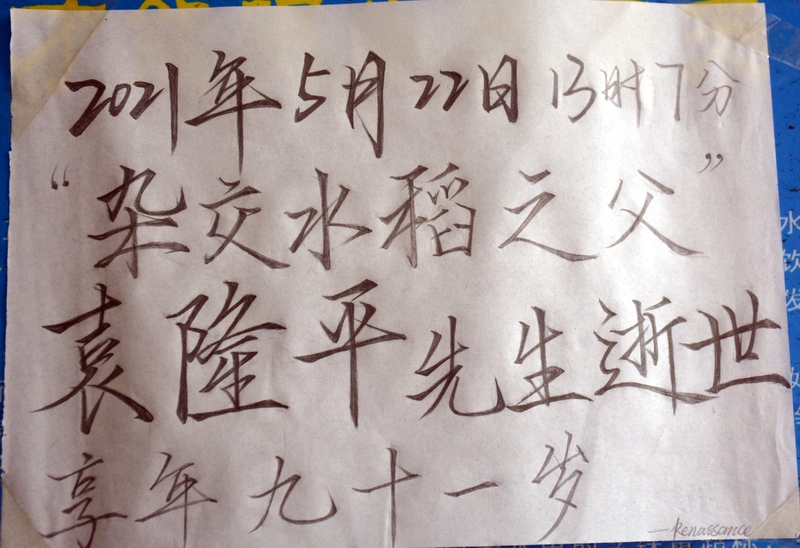 2021年5月22日13时7分
“杂交水稻之父”
袁隆平先生逝世
享年九十一岁
—Renaissance
水
饮
发